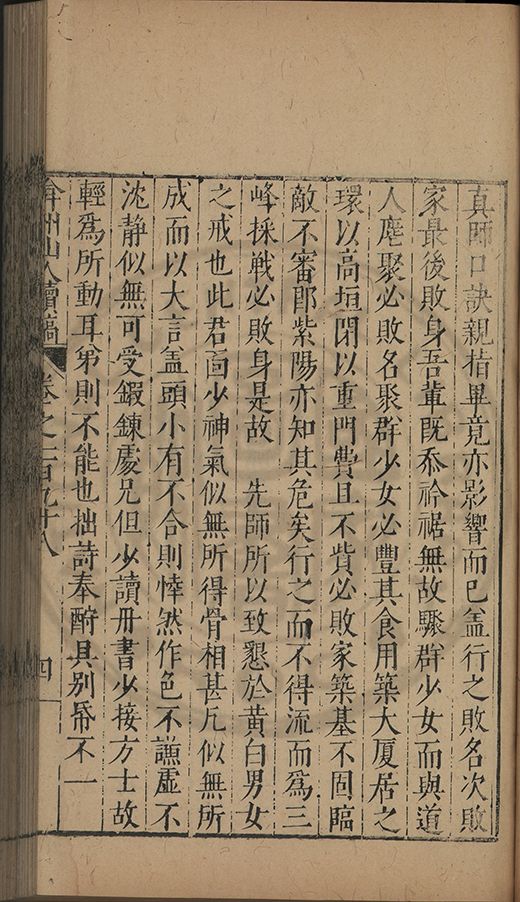 真師口訣親指畢竟亦影響而已盖行之敗名次敗
家最後敗身吾輩既忝衿裾無故驟群少女而與道
人麈聚必敗名聚群少女必豐其食用築大厦居之
環以高垣閉以重門費且不貲必敗家築基不固臨
敵不審郎紫陽亦知其危矣行之而不得流而為三
峰採戰必敗身是故　先師所以致懇於黃白男女
之戒也此君面少神氣似無所得骨相甚凢似無所
成而以大言盖頭小有不合則悻然作色不謙虛不
沈静似無可受鍛鍊處兄但少讀冊書少接方士故
輕爲所動耳弟則不能也拙詩奉酧具别帋不一
弇州山人續稿 卷之一百九十八 四